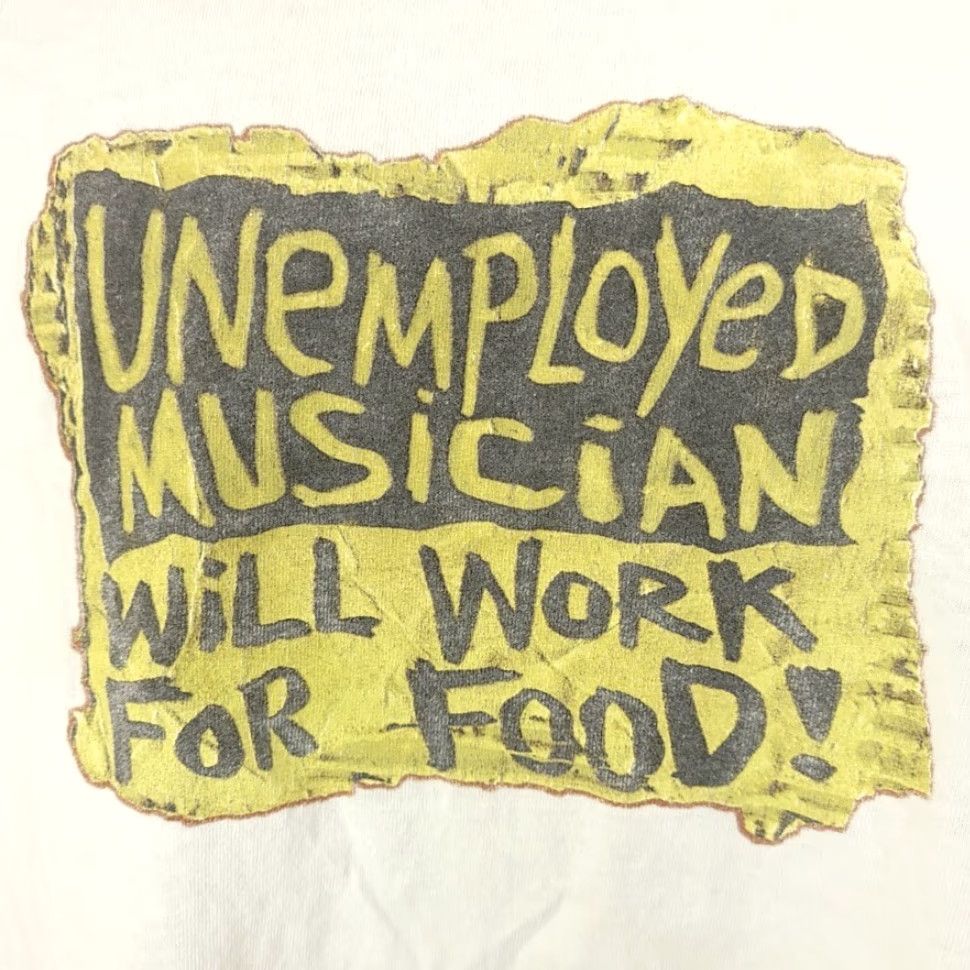 UNeMPLOYeD
MUSiCiAN
WiLL WORK
FOR FOOD!